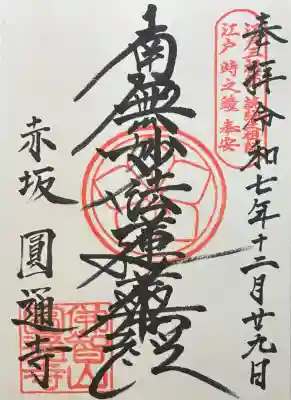 奉拝 令和七年十二月廿九日
江戸時之鐘奉安
南無妙法蓮華経
赤坂 圓通寺